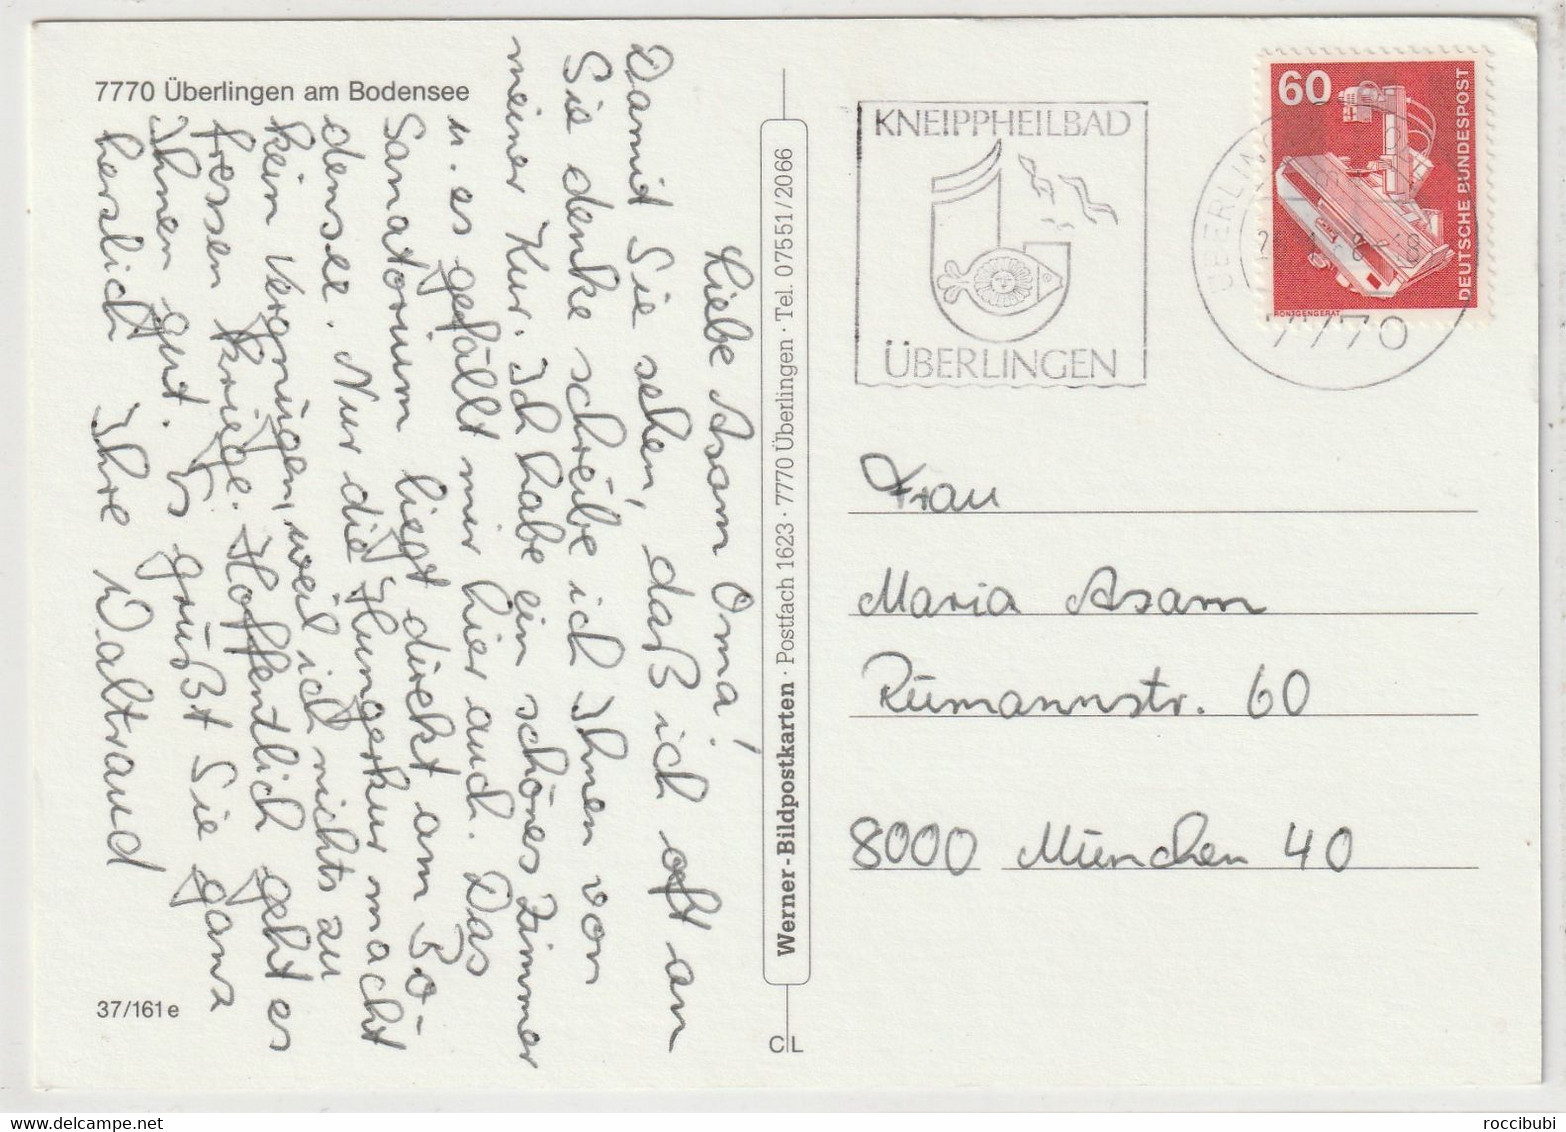 7770 Überlingen am Bodensee
Liebe Asam Oma!
Damit Sie sehen, daß ich oft an
Sie denke schreibe ich Ihnen von
meiner Kur. Ich habe ein schönes Zimmer
u. es gefällt mir hier auch. Das
Sanatorium liegt direkt am Bo-
densee. Nur die Hungerkur macht
kein Vergnügen, weil ich nichts zu
fressen kriege. Hoffentlich geht es
Ihnen gut. Es grüßt Sie ganz
herzlich Ihre Waltraud
37/161e
Werner-Bildpostkarten · Postfach 1623 · 7770 Überlingen · Tel. 07551/2066
C L
KNEIPPHEILBAD
ÜBERLINGEN
60
DEUTSCHE BUNDESPOST
RÖNTGENGERÄT
7770
Frau
Maria Asam
Rümannstr. 60
8000 München 40
roccibubi